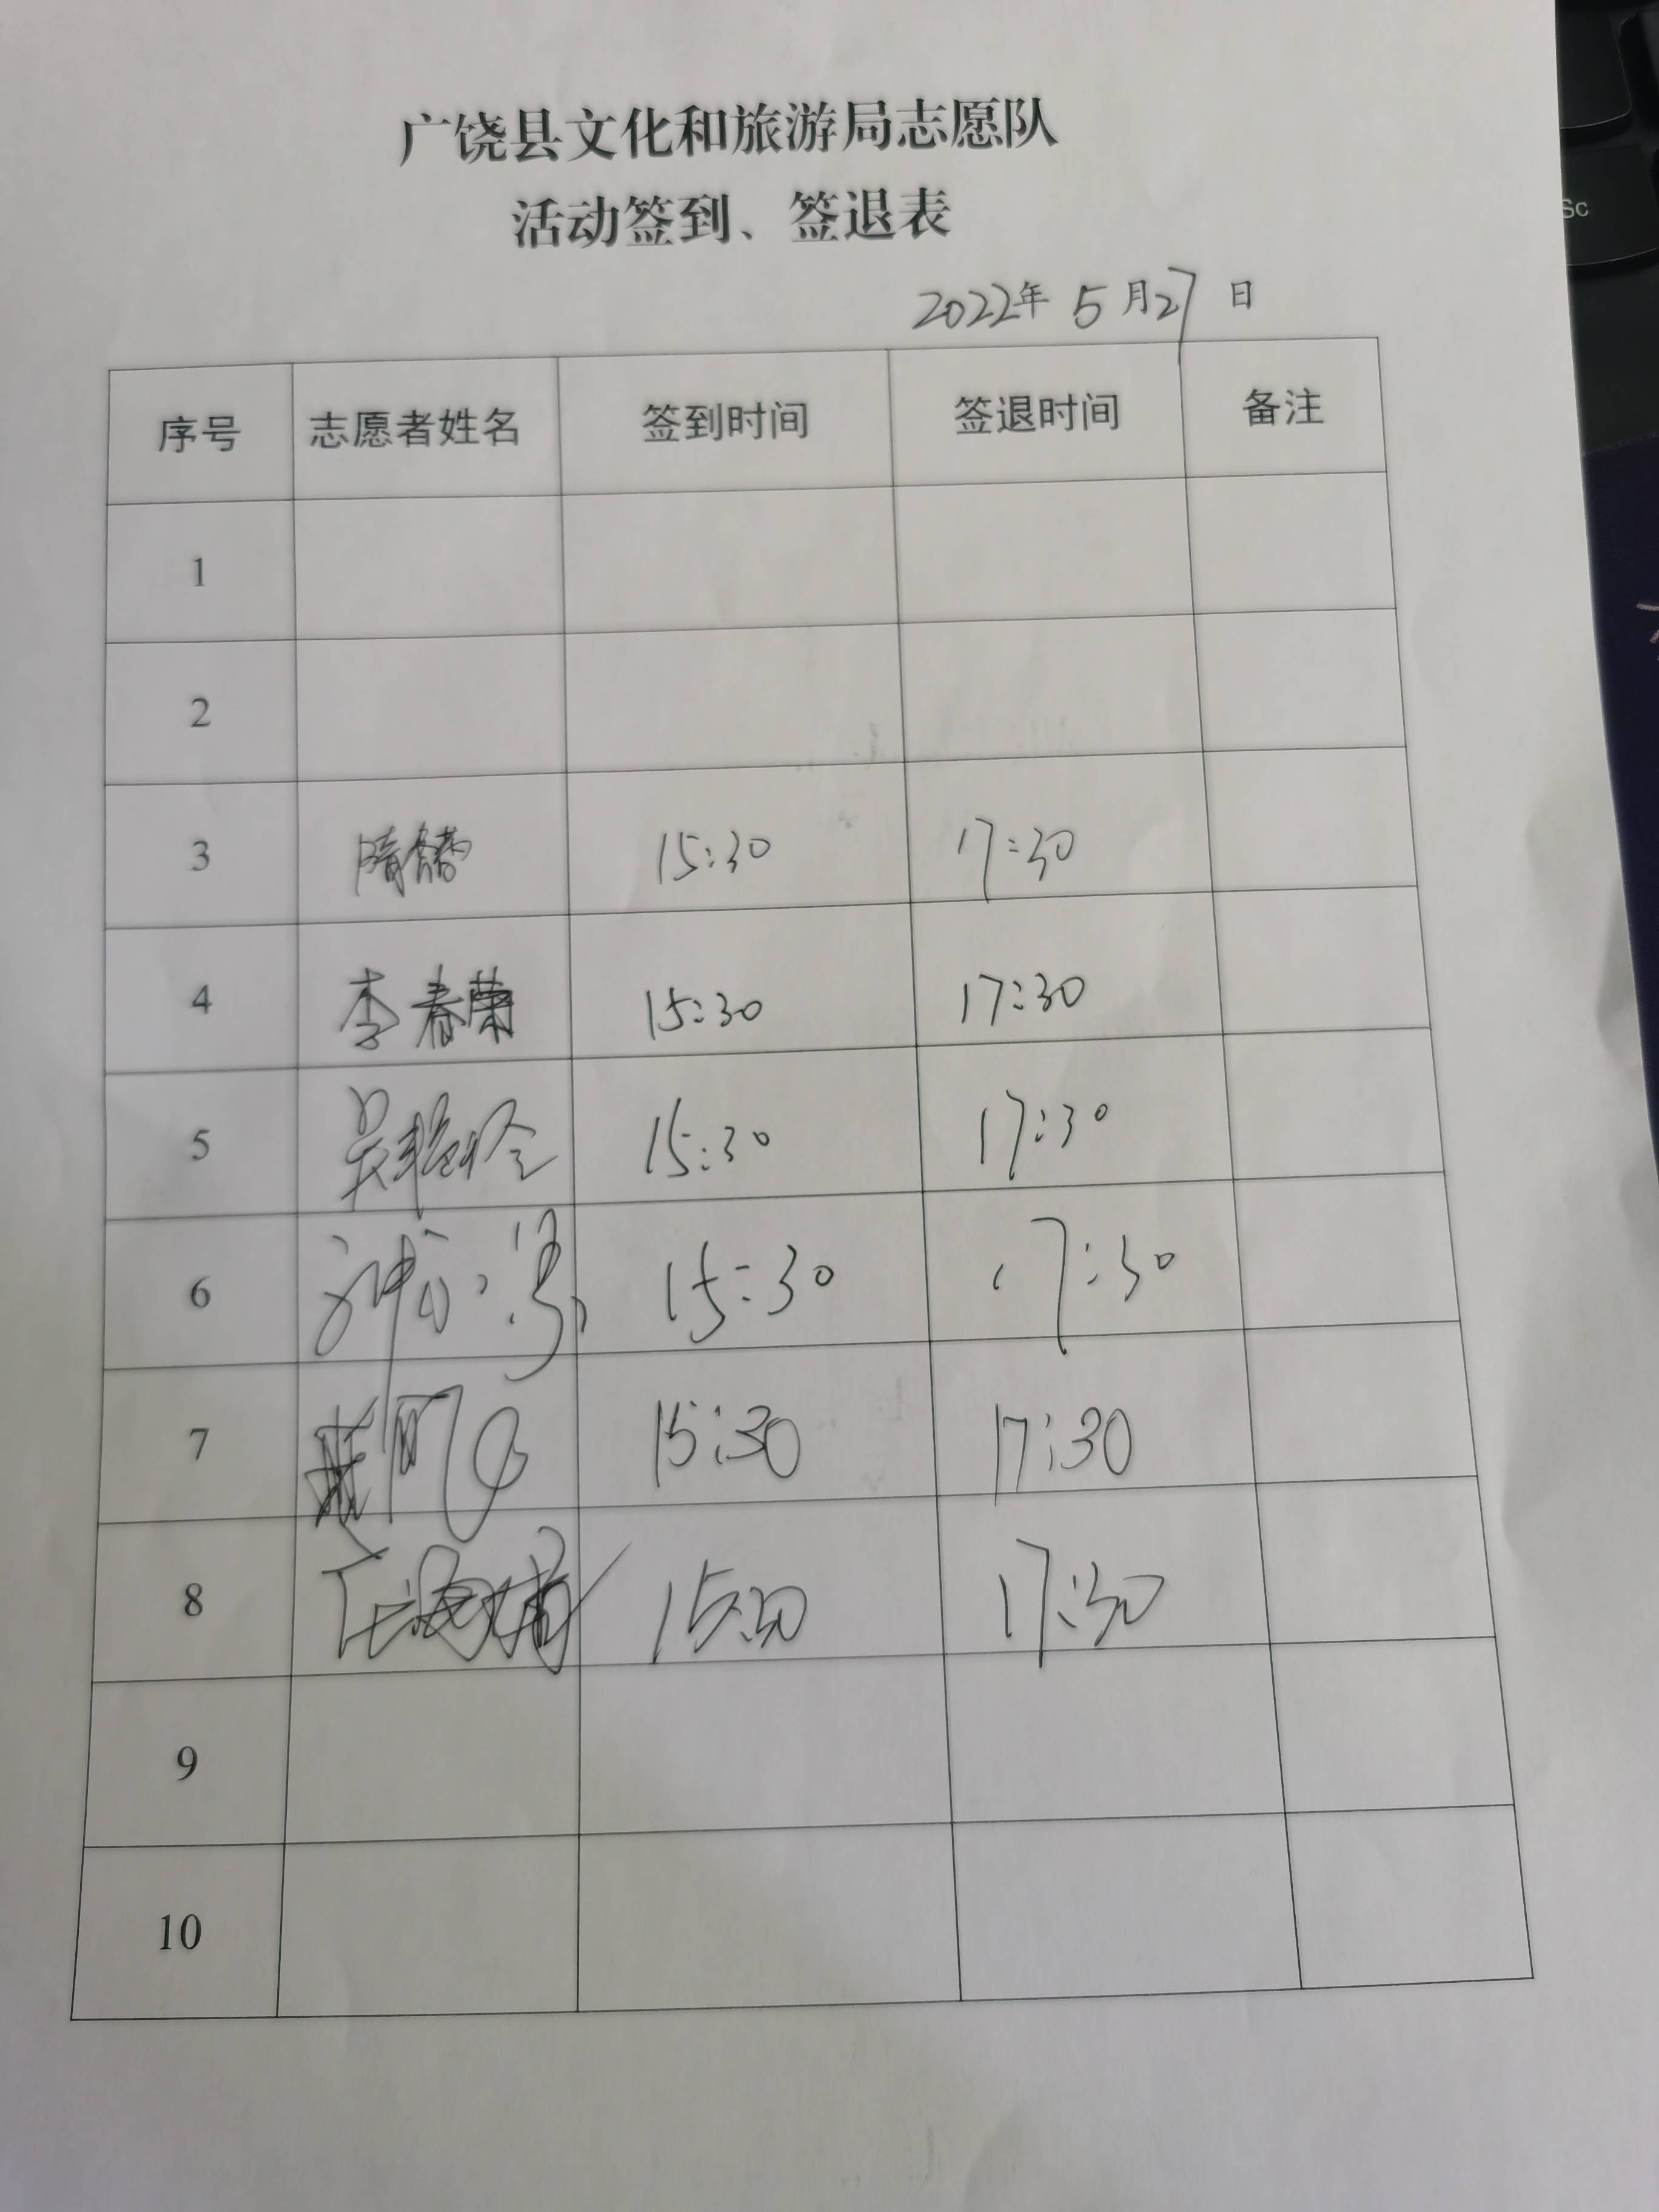 广饶县文化和旅游局志愿队
活动签到、签退表
2022年 5月27日
序号 志愿者姓名 签到时间 签退时间 备注
1
2
3 15:30 17:30
4 李春荣 15:30 17:30
5 吴艳玲 15:30 17:30
6 15:30 17:30
7 15:30 17:30
8 15:30 17:30
9
10
Sc